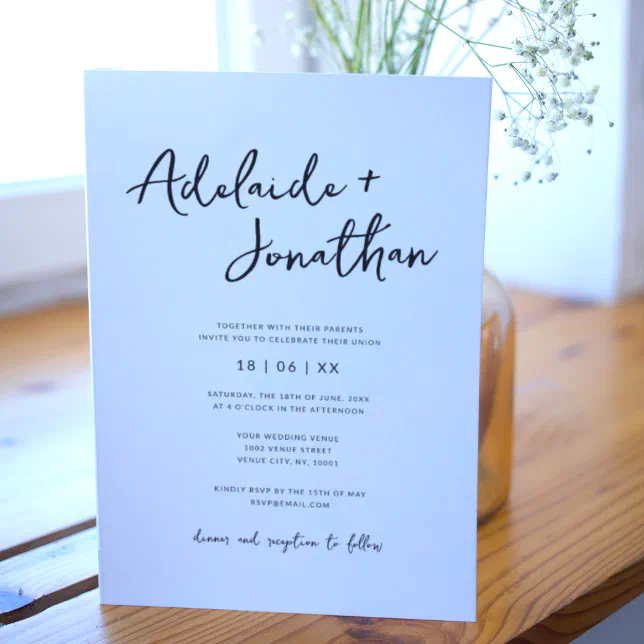 Adelaide +
Jonathan
TOGETHER WITH THEIR PARENTS
INVITE YOU TO CELEBRATE THEIR UNION
18 | 06 | XX
SATURDAY, THE 18TH OF JUNE, 20XX
AT 4 O'CLOCK IN THE AFTERNOON
YOUR WEDDING VENUE
1002 VENUE STREET
VENUE CITY, NY, 10001
KINDLY RSVP BY THE 15TH OF MAY
RSVP@EMAIL.COM
dinner and reception to follow